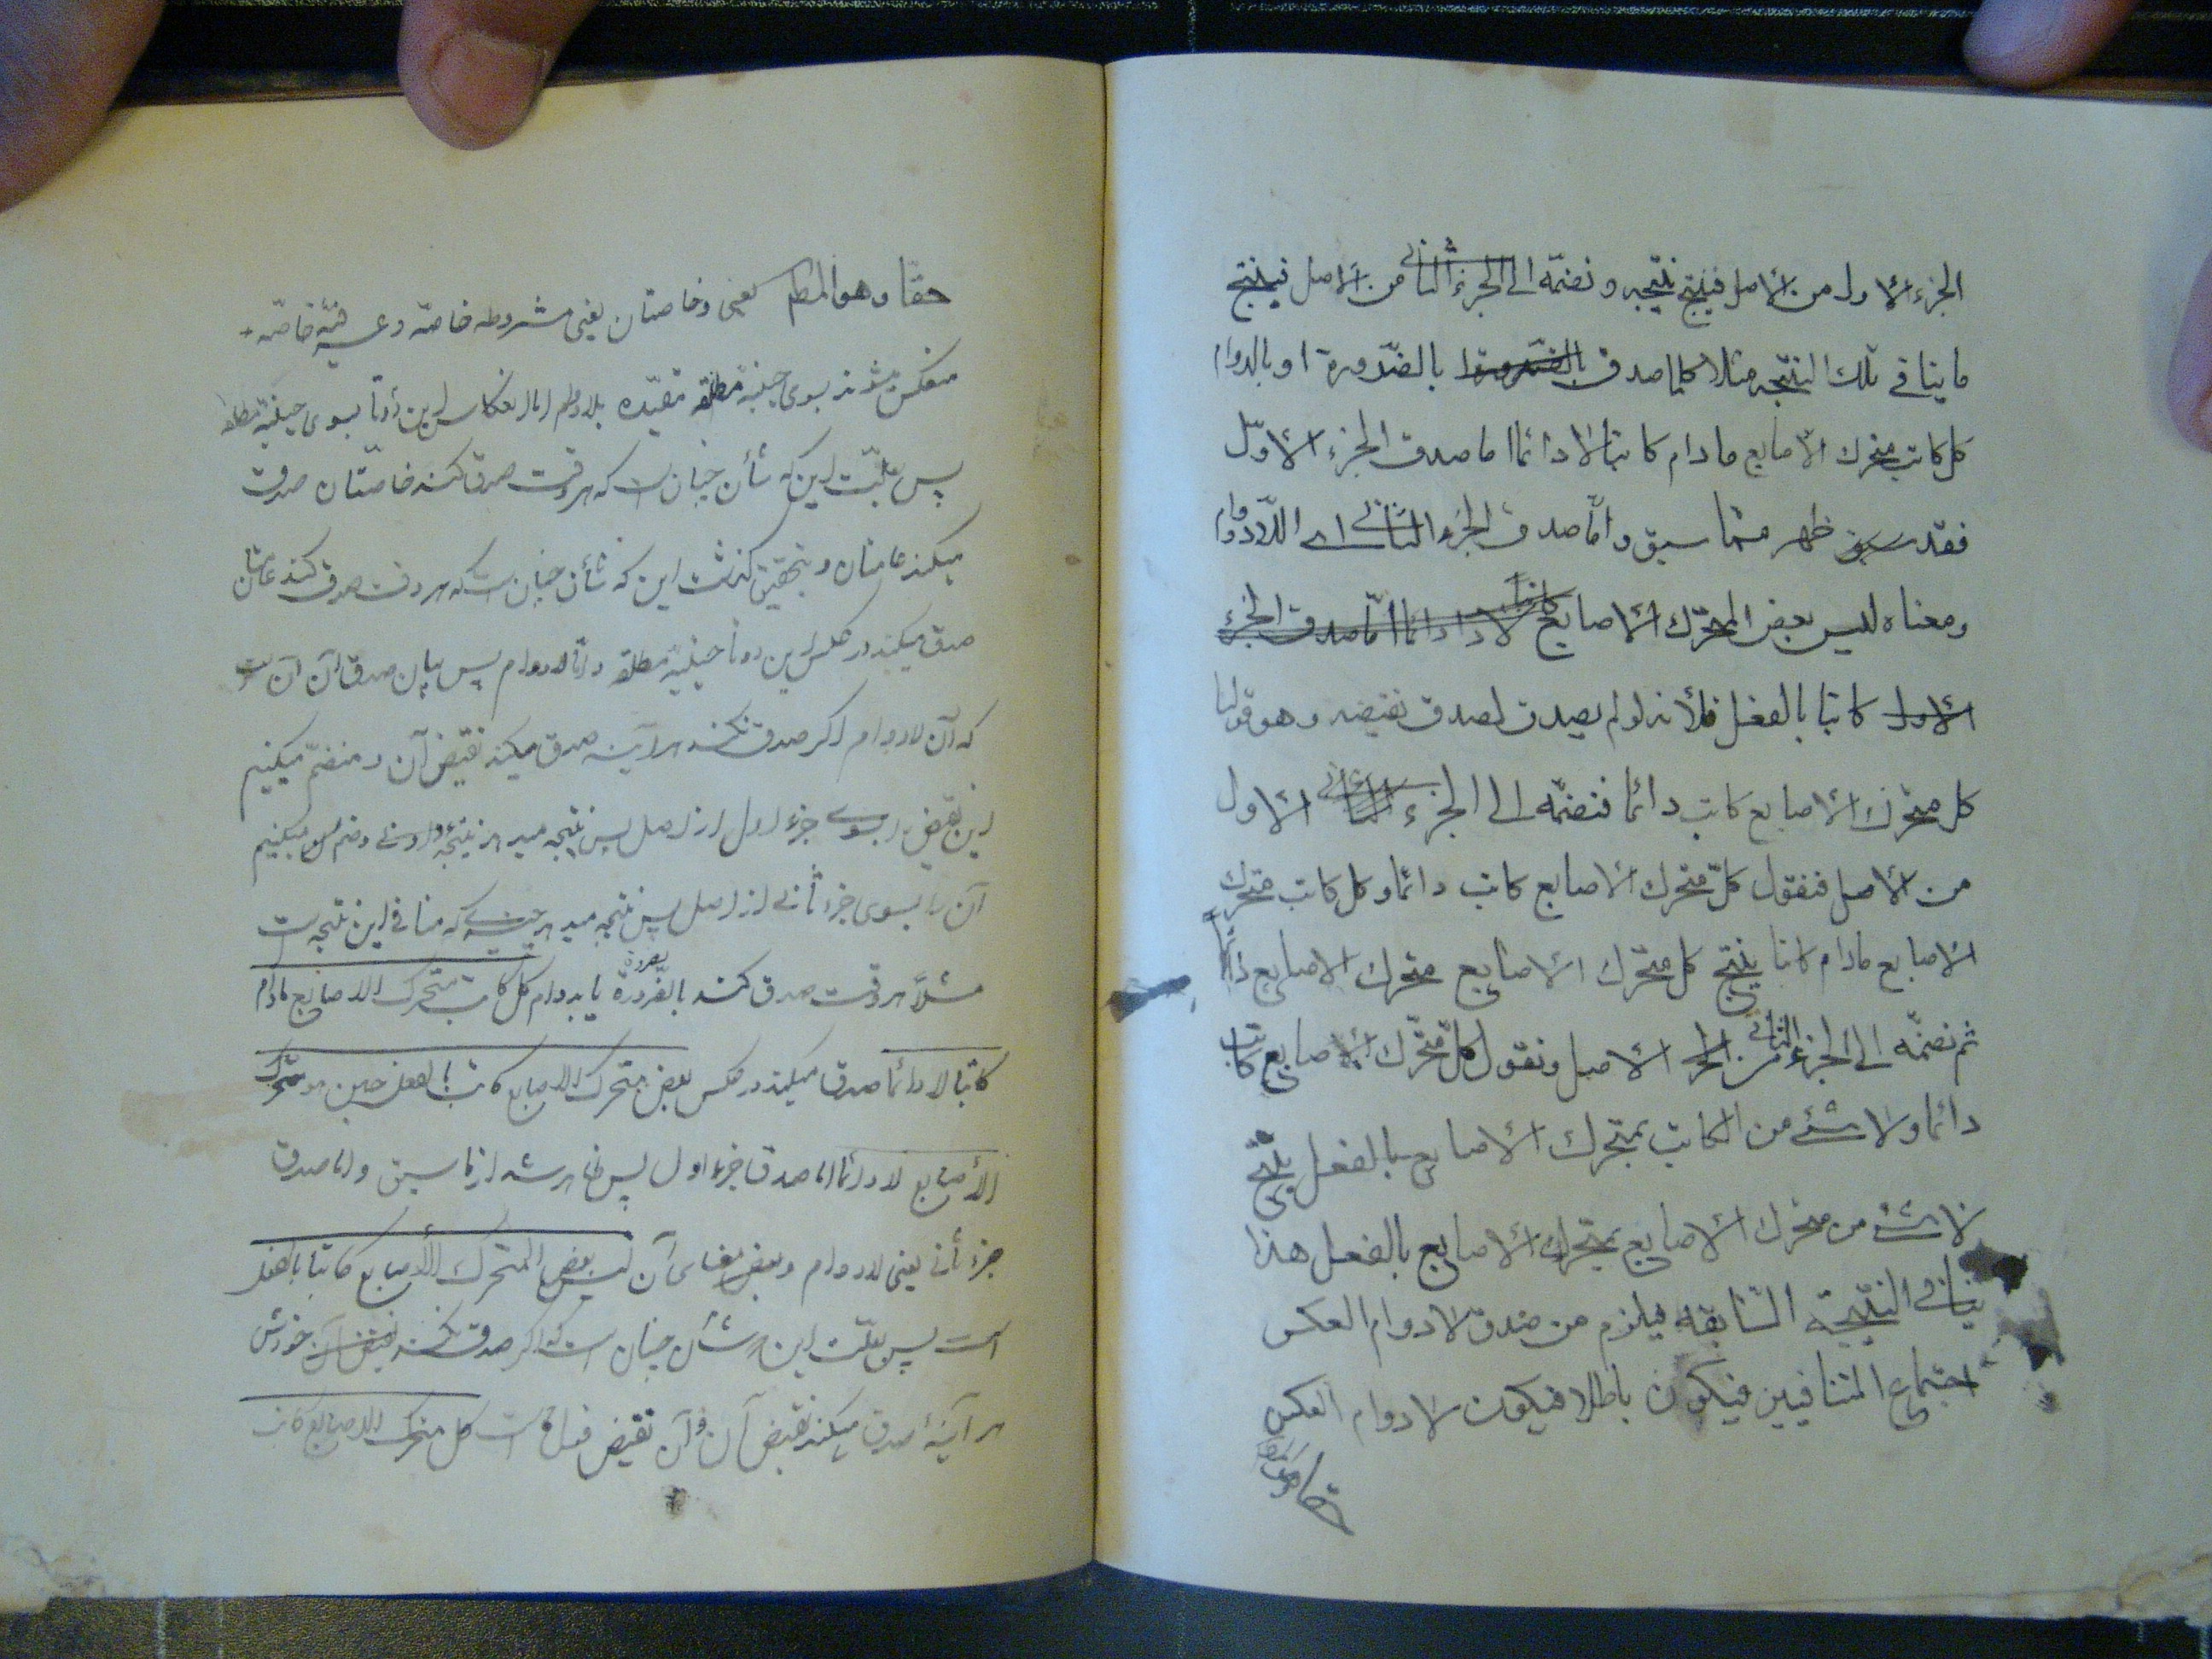 الجزء الاول من الأصل فينتج نتيجة و نضمّه الى الجزء الثانی من الأصل فينتج
ما ينافى تلك النتيجه مثلا كلما صدق بالضرورة بالضّرورة او بالدوام
كل كاتب متحرك الأصابع مادام كاتبا لا دائما اما صدق الجزء الأوّل
فقد سبق ظهر ممّا سبق و امّا صدق الجزء الثانى اى اللّادوام
ومعناه ليس بعض المتحرّك الأصابع كاتبا لا دائما امّا صدق الجزء
الاول كاتبا بالفعل فلأنه لو لم يصدق لصدق نقيضه و هو قولنا
كل متحرّك الأصابع كاتب دائما فنضمّه الى الجزء الثانى الاول
من الأصل فنقول كلّ متحرك الأصابع كاتب دائما و كل كاتب متحرك
الأصابع مادام كاتبا ينتج كل متحرّك الأصابع متحرك الاصابع دائماً
ثم نضمّه الى الجزء الثانى من الأصل و نقول كلّ متحرّك الأصابع كاتب
دائما ولا شئ من الكاتب بمتحرك الأصابع بالفعل ينتج
لا شئ من متحرك الأصابع بمتحرك الأصابع بالفعل هذا
ينافى النتيجة السّابقه فيلزم من صدق لادوام العكس
اجتماع المتنافيين فيكون باطلا فيكون لادوام العكس
حقّا و هو المط يعنى و خاصتان يعنى مشروطه خاصّه و عرفيّه خاصّه
منعكس ميشوند بسوى حينيّة مطلقه مقيّده بلادوام اما انعكاس اين دوتا بسوى حينيّة مطلقه
پس بعلّت اين كه شأن چنان است كه هر وقت صدق كند خاصّتان صدق
ميكند عامتان و بتحقيق گذشت اين كه شأن چنان است كه هر وقت صدق كند عامتان
صدق ميكند در عكس اين دوتا حينيّة مطلقه و امّا لادوام پس بيان صدق آن آن است
كه آن لادوام اگر صدق نكند هر آينه صدق ميكند نقيض آن و منضمّ ميكنيم
اين نقيض را بسوى جزء اول از اصل پس نتيجه ميدهد نتيجه و ضم ميكنيم
آن را بسوى جزء ثانى از اصل پس نتيجه ميدهد چيزى كه منافى اين نتيجه است
مثلاً هر وقت صدق كند بالضّرورة يا بدوام كل كاتب متحرك الاصابع مادام
كاتبا لا دائما صدق ميكند در عكس بعض متحرك الاصابع كاتب بالفعل حين هو متحرك
الأصابع لادائما اما صدق جزء اول پس ظاهر شد از ما سبق و اما صدق
جزء ثانى يعنى لادوام و معناى آن ليس بعض المتحرك الأصابع كاتبا بالفعل
است پس بعلّت اين كه شأن چنان است كه اگر صدق نكند نقيض آن خودش
هر آينه صدق ميكند نقيض آن و آن نقيض قول ما است كل متحرك الاصابع كاتب